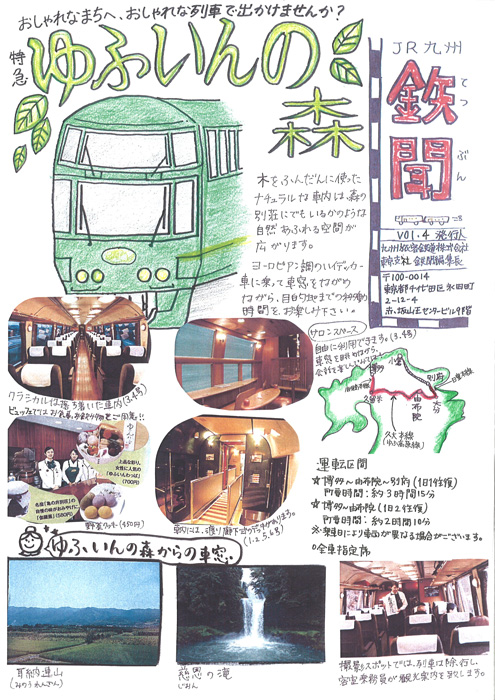 おしゃれなまちへ、おしゃれな列車で出かけませんか？
特急
ゆふいんの
森
JR九州
鉄聞
てつ
ぶん
VOl.4 発行人
九州旅客鉄道株式会社
東京支社 鉄聞編集長
〒100-0014
東京都千代田区永田町
2-12-4
赤坂山王センタービル9階
木をふんだんに使った
ナチュラルな車内は、森の
別荘にでもいるかのような
自然あふれる空間が
広がります。
ヨーロピアン調のハイデッカー
車に乗って車窓をながめ
ながら、目的地までの移動
時間を、お楽しみ下さい。
サロンスペース
自由に利用できます。(3.4号)
車窓を眺めながら、
クラシカルな落ち着いた車内(3.4号)
上品な彩り、
女性に人気の
「ゆふいんわっぱ」
(700円)
名旅「亀の井別荘」の
(580円)
(450円)
(1.2.5.6号)
小倉
博多
別府
大分
日豊本線
久留米
由布院
久大本線
(ゆふ高原線)
運転区間
☆博多〜由布院〜別府(1日1往復)
所要時間：約3時間15分
☆博多〜由布院(1日2往復)
所要時間：約2時間10分
※乗車日により車両が異なる場合がございます。
○全車指定席
ゆふいんの森からの車窓
耳納連山
(みのうれんざん)
慈恩の滝
じおん
撮影スポットでは、列車は徐行し、
客室乗務員が観光案内を致します。